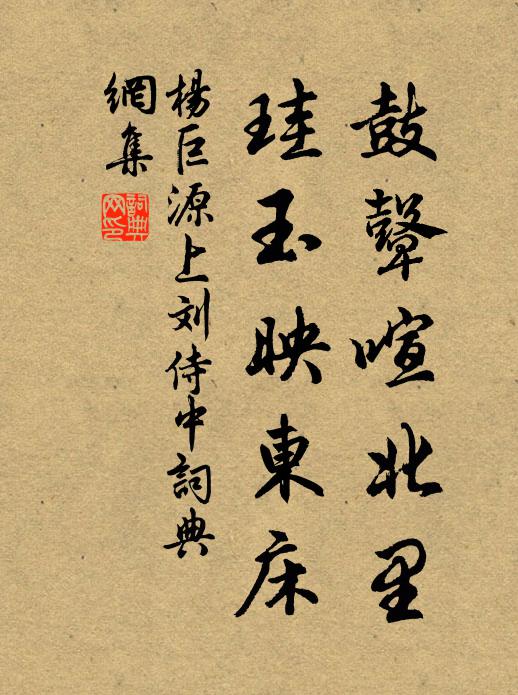 鼓聲喧北里
珪玉映東床
楊巨源上刘侍中詞典
網集
詞典网印